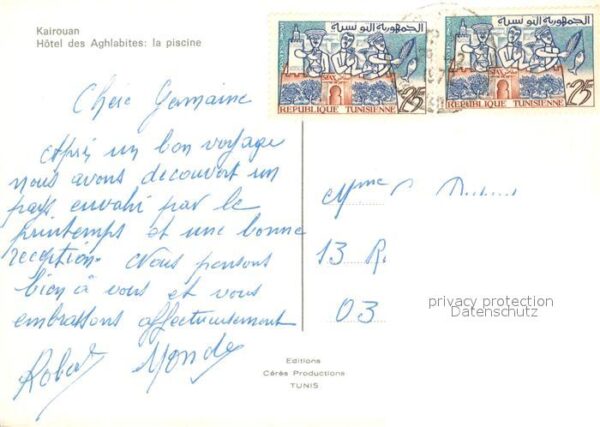 Kairouan
Hôtel des Aghlabites: la piscine
الجمهورية التونسية
SFAX
25
REPUBLIQUE TUNISIENNE
الجمهورية التونسية
SFAX
25
REPUBLIQUE TUNISIENNE
Chère Germaine
Après un bon voyage
nous avons decouvert un
pays envahi par le
printemps et une bonne
reception. Nous pensons
bien à vous et vous
embrassons affectueusement
Mme
13 R.
03
privacy protection
Datenschutz
Editions
Cérès Productions
TUNIS